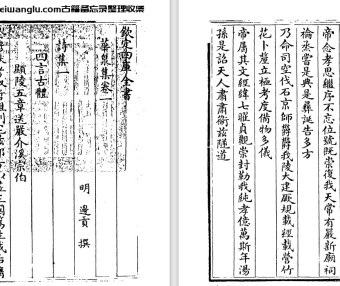 eiwanglu.com古籍备忘录整理收集
欽定四庫全書
華泉集卷一
明 邊貢 撰
詩集一
四言古體
顯陵五章送嚴介溪宗伯
帝念孝思繼序不忘位號既崇復我天常有嚴新廟祠
烝嘗是典是彝誕告多方
乃命司空伐石京師爵爵我陵大建厥規載經載營竹
立極考度備物多儀
帝屬其文經緯七曜貞觀崇封勒我純孝億萬斯年湯
孫是詒天人肅肅衛茲隧道